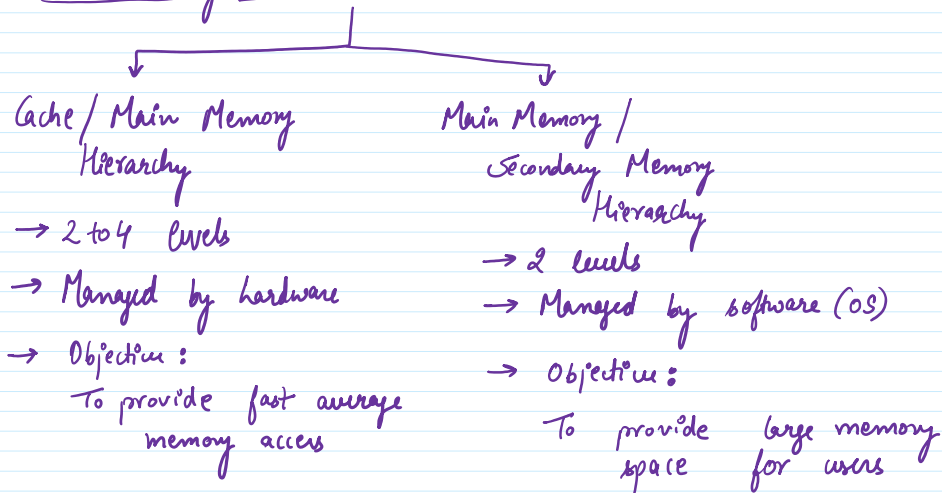 Cache / Main Memory
Hierarchy
→ 2 to 4 levels
→ Managed by hardware
→ Objective :
To provide fast average
memory access
Main Memory /
Secondary Memory
Hierarchy
→ 2 levels
→ Managed by software (OS)
→ Objective :
To provide large memory
space for users